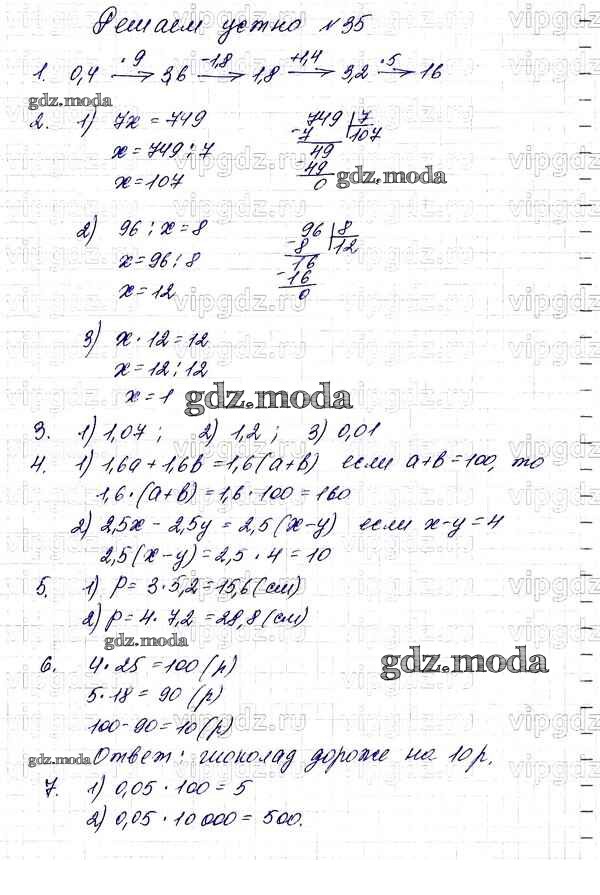 Решаем устно №35
1. 0,4 —·9→ 3,6 —-1,8→ 1,8 —+1,4→ 3,2 —·5→ 16
gdz.moda
2. 1) 7x = 749   749 | 7
x = 749 : 7   -7 | 107
x = 107   49
-49
0
gdz.moda
2) 96 : x = 8   96 | 8
x = 96 : 8   -8 | 12
x = 12   16
-16
0
3) x · 12 = 12
x = 12 : 12
x = 1
gdz.moda
3. 1) 1,07 ; 2) 1,2 ; 3) 0,01
4. 1) 1,6a + 1,6b = 1,6(a+b) если a+b = 100, то
1,6 · (a+b) = 1,6 · 100 = 160
2) 2,5x - 2,5y = 2,5(x-y) если x-y = 4
2,5(x-y) = 2,5 · 4 = 10
5. 1) P = 3 · 5,2 = 15,6 (см)
2) P = 4 · 7,2 = 28,8 (см)
gdz.moda
6. 4 · 25 = 100 (р)
gdz.moda
5 · 18 = 90 (р)
100 - 90 = 10 (р)
gdz.moda Ответ: шоколад дороже на 10 р.
7. 1) 0,05 · 100 = 5
2) 0,05 · 10 000 = 500.
vipgdz.ru